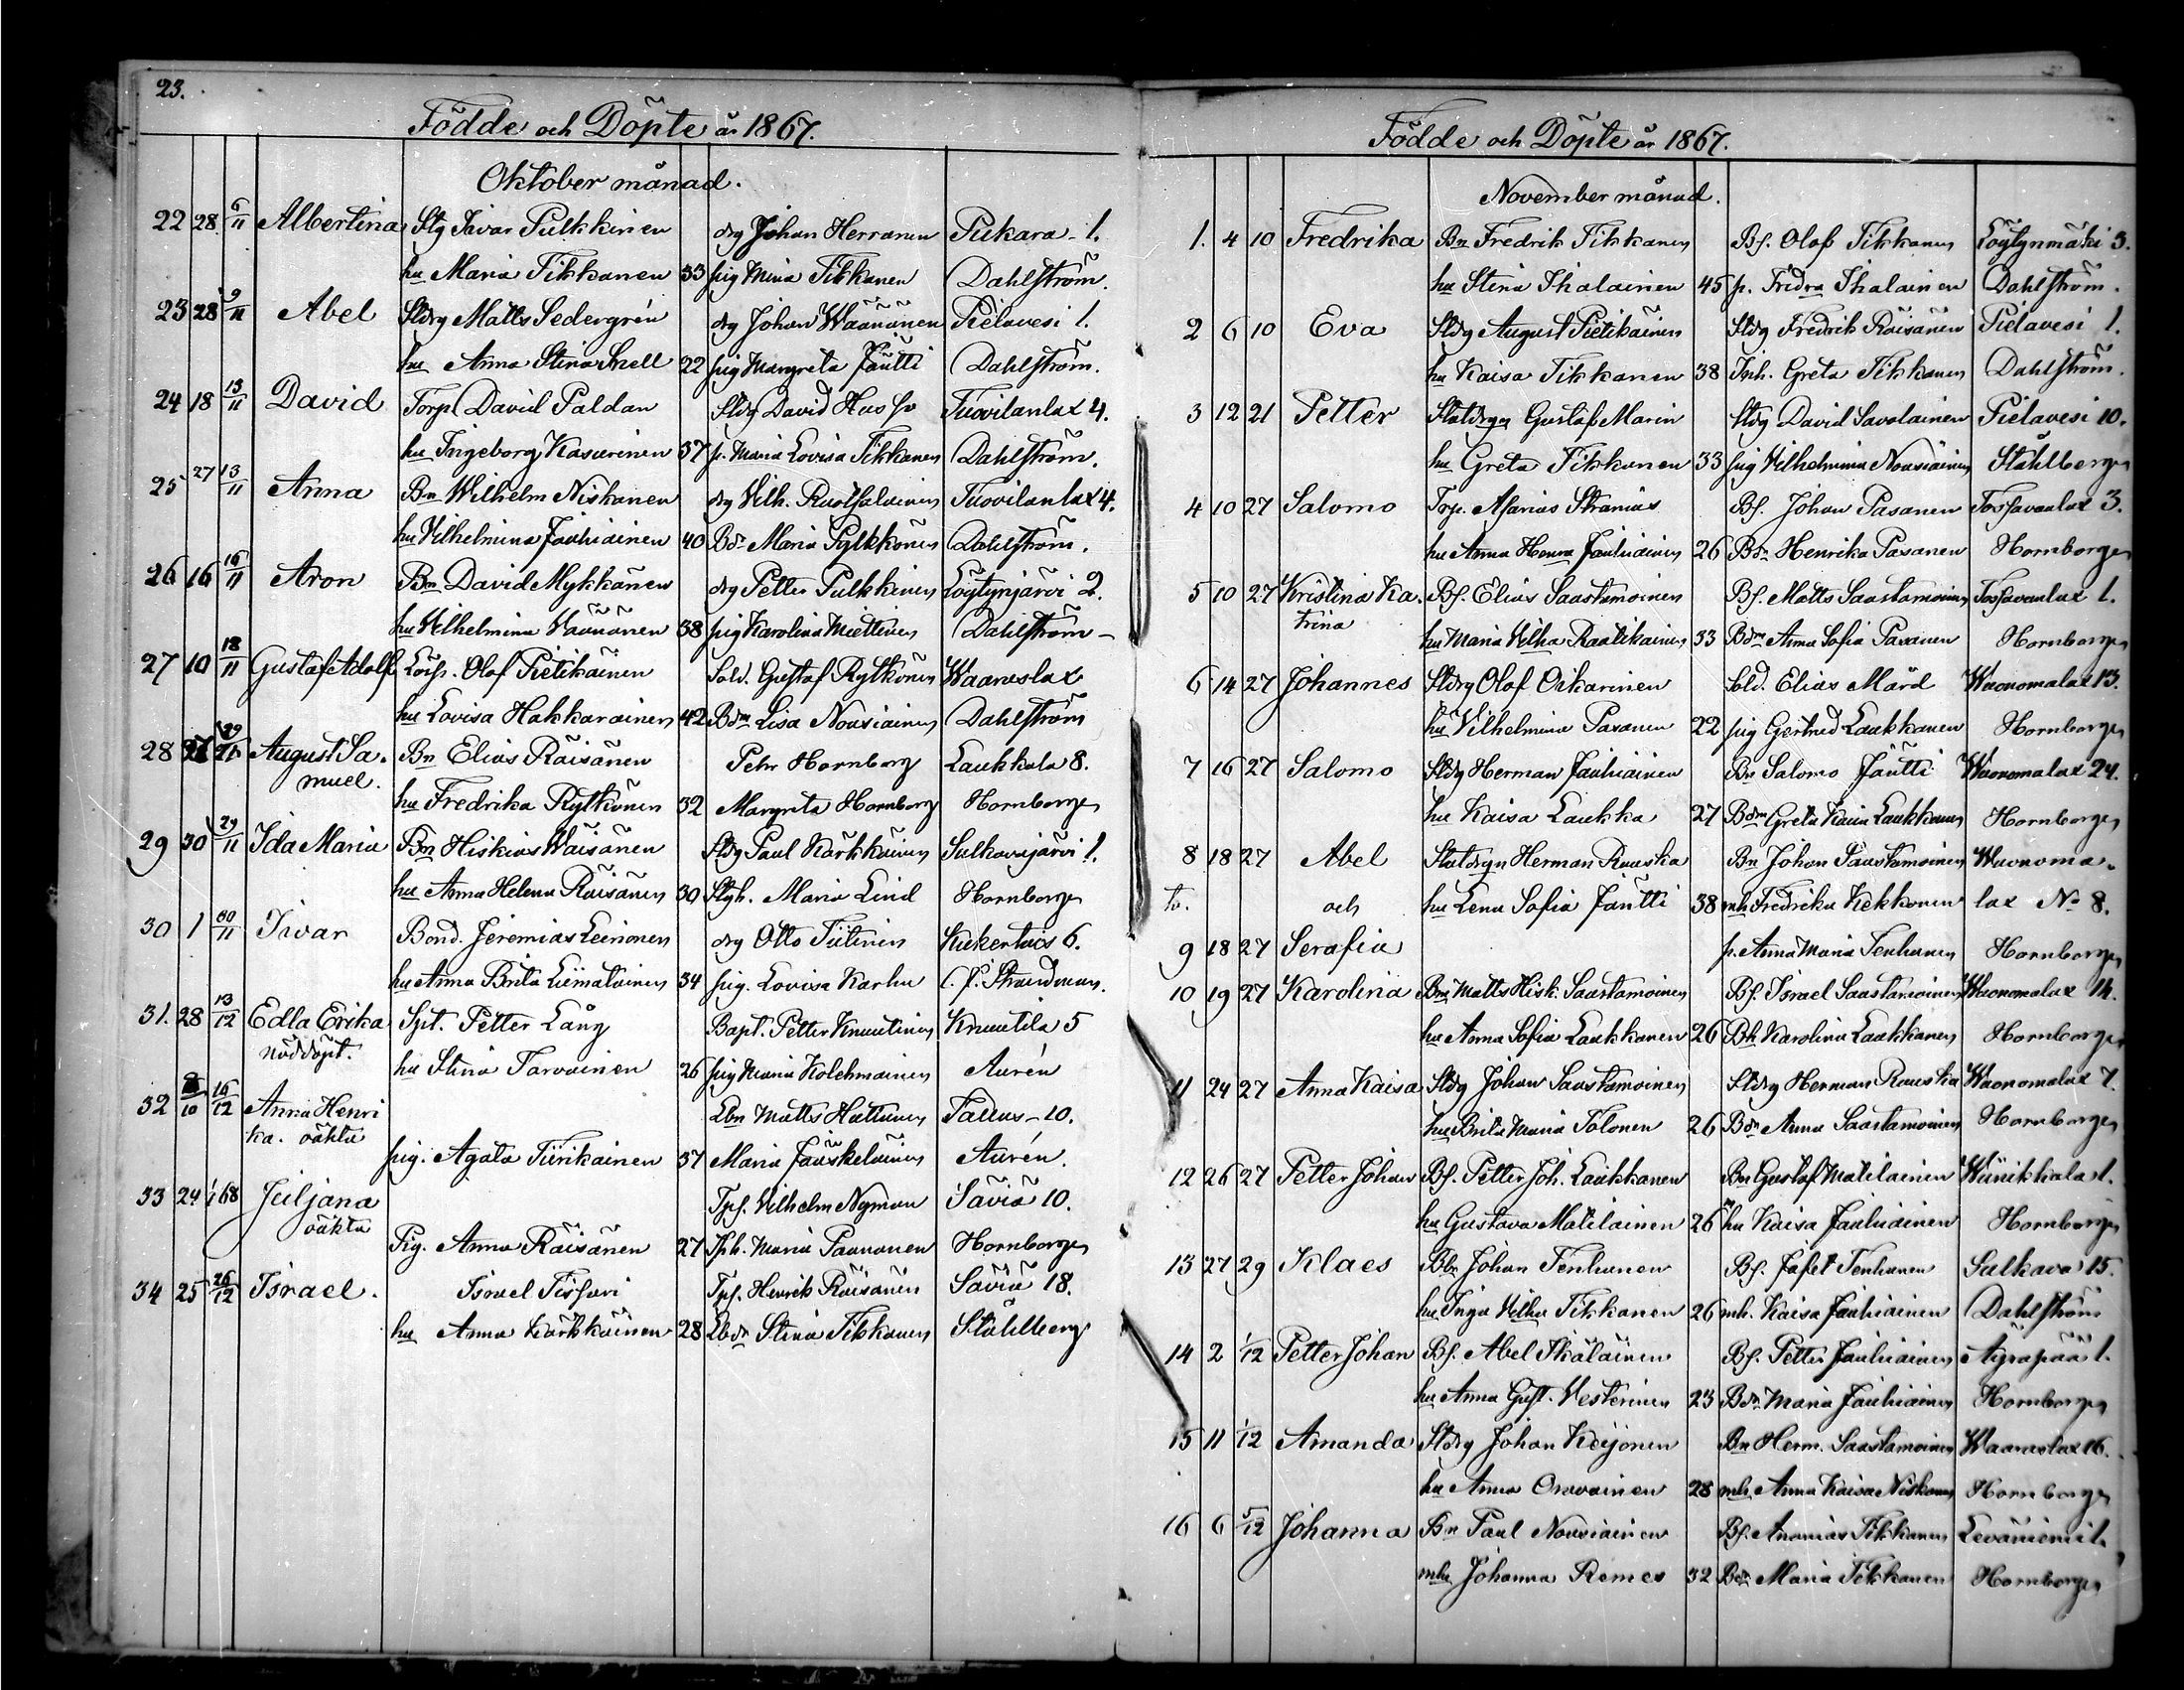 23.
Födde och Döpte år 1867.
Oktober månad.
22 28 6/11 Albertina Stg Ivar Pulkkinen drg Johan Herranen Pukara - 1.
hu Maria Tikkanen 33 pig Mina Tikkanen Dahlström.
23 28 9/11 Abel Stdrg Matts Sedergrén drg Johan Wäänänen Pielavesi 1.
hu Anna Stina Snell 22 pig Margreta Jäntti Dahlström.
24 18 13/11 David Torp. David Paldan Stdrg David Huss Tuovilanlax 4.
hu Ingeborg Kasurinen 37 p. Maria Lovisa Tikkanen Dahlström.
25 27 13/11 Anna Bn Wilhelm Niskanen drg Vilh. Ruotsalainen Tuovilanlax 4.
hu Vilhelmina Jauhiainen 40 Bdr Maria Pylkkönen Dahlström.
26 16 16/11 Aron Bn David Mykkänen drg Petter Pulkkinen Löytynjärvi 2.
hu Vilhelmina Väänänen 38 pig Karolina Miettinen Dahlström -
27 10 18/11 Gustaf Adolf Lösp. Olof Pietikäinen Sold. Gustaf Rytkönen Waaraslax
hu Lovisa Hakkarainen 42 Bdr Lisa Nousiainen Dahlström
28 27 29/11 August Sa- Bn Elias Räisänen Pehr Hornborg Laukkala 8.
muel. hu Fredrika Rytkönen 32 Margreta Hornborg Hornborg
29 30 29/11 Ida Maria Bn Hiskias Väisänen Stdrg Paul Kärkkäinen Sulkavajärvi 1.
hu Anna Helena Räisänen 30 Stgh. Maria Lind Hornborg
30 1 30/11 Ivar Bond. Jeremias Leinonen drg Otto Tiitinen Kukertais 6.
hu Anna Brita Liimatainen 34 pig. Lovisa Karhu C. J. Strandman.
31. 28 13/12 Edla Erika Spt. Petter Lång Bapt. Petter Knuutinen Knuutila 5
nöddöpt. hu Stina Tarvainen 26 pig Maria Kolehmainen Aurén
32 /10 16/12 Anna Henri Lbn Matts Hattunen Tallus - 10.
ka. oäkta pig. Agata Tiirikainen 37 Maria Jääskeläinen Aurén.
33 24 1/1 68 Juljana Tps. Vilhelm Nyman Säviä 10.
oäkta Pig. Anna Räisänen 27 Tph. Maria Paananen Hornborg
34 25 26/12 Israel. Israel Tissari Tps. Henrik Räisänen Säviä 18.
hu Anna Kärkkäinen 28 Lbdr Stina Tikkanen Ståhlberg
Födde och Döpte år 1867.
November månad.
1. 4 10 Fredrika Bn Fredrik Tikkanen Bs. Olof Tikkanen Löytynmäki 3.
hu Stina Ihalainen 45 p. Fredra Ihalainen Dahlström.
2 6 10 Eva Stdrg August Pietikäinen Stdrg Fredrik Räisänen Pielavesi 1.
hu Kaisa Tikkanen 38 Inh. Greta Tikkanen Dahlström.
3 12 21 Petter Statdrgn Gustaf Marin Stdrg David Savolainen Pielavesi 10.
hu Greta Tikkanen 33 pig Vilhelmina Nousiainen Ståhlberg
4 10 27 Salomo Torp. Asarias Stranius Bs. Johan Pasanen Tossavanlax 3.
hu Anna Henra Jauhiainen 26 Bdr Henrika Pasanen Hornborg
5 10 27 Kristina Ka- Bs. Elias Saastamoinen Bs. Matts Saastamoinen Tossavanlax 1.
trina hu Maria Vilha Raatikainen 33 Bdr Anna Sofia Pasanen Hornborg
6 14 27 Johannes Stdrg Olof Oikarinen Sold. Elias Mård Waonomalax 13.
hu Vilhelmina Pasanen 22 pig Gertrud Laukkanen Hornborg
7 16 27 Salomo Stdrg Herman Jauhiainen Bn Salomo Jäntti Waonomalax 24.
hu Kaisa Laukka 27 Bdr Greta Kaisa Laukkanen Hornborg
8 18 27 Abel Statdrgn Herman Rauska Bn Johan Saastamoinen Waonoma-
tv. och hu Lena Sofia Jäntti 38 mh Fredrika Kekkonen lax No 8.
9 18 27 Serafia p. Anna Maria Tenhunen Hornborg
10 19 27 Karolina Bm Matts Hisk. Saastamoinen Bs. Israel Saastamoinen Waonomalax 14.
hu Anna Sofia Laukkanen 26 Bh Karolina Laukkanen Hornborg
11 24 27 Anna Kaisa Stdrg Johan Saastamoinen Stdrg Herman Rauska Waonomalax 7.
hu Brita Maria Tolonen 26 Bdr Anna Saastamoinen Hornborg
12 26 27 Petter Johan Bs. Petter Joh. Laukkanen Bn Gustaf Matilainen Wiinikkala 1.
hu Gustava Matilainen 26 hu Kaisa Jauhiainen Hornborg
13 27 29 Klaes Bbr Johan Tenhunen Bs. Jafet Tenhunen Sulkava 15.
hu Inga Vilha Tikkanen 26 mh. Kaisa Jauhiainen Dahlström
14 2 1/12 Petter Johan Bs. Abel Ikäläinen Bs. Petter Jauhiainen Äyräpää 1.
hu Anna Gust. Vesterinen 23 Bdr Maria Jauhiainen Hornborg
15 11 1/12 Amanda Stdrg Johan Keijonen Bn Herm. Saastamoinen Waaraslax 16.
hu Anna Oravainen 28 mh Anna Kaisa Niskanen Hornborg
16 6 5/12 Johanna Bn Paul Nousiainen Bs. Ananias Tikkanen Leväniemi 1.
mhu Johanna Remes 32 Bdr Maria Tikkanen Hornborg